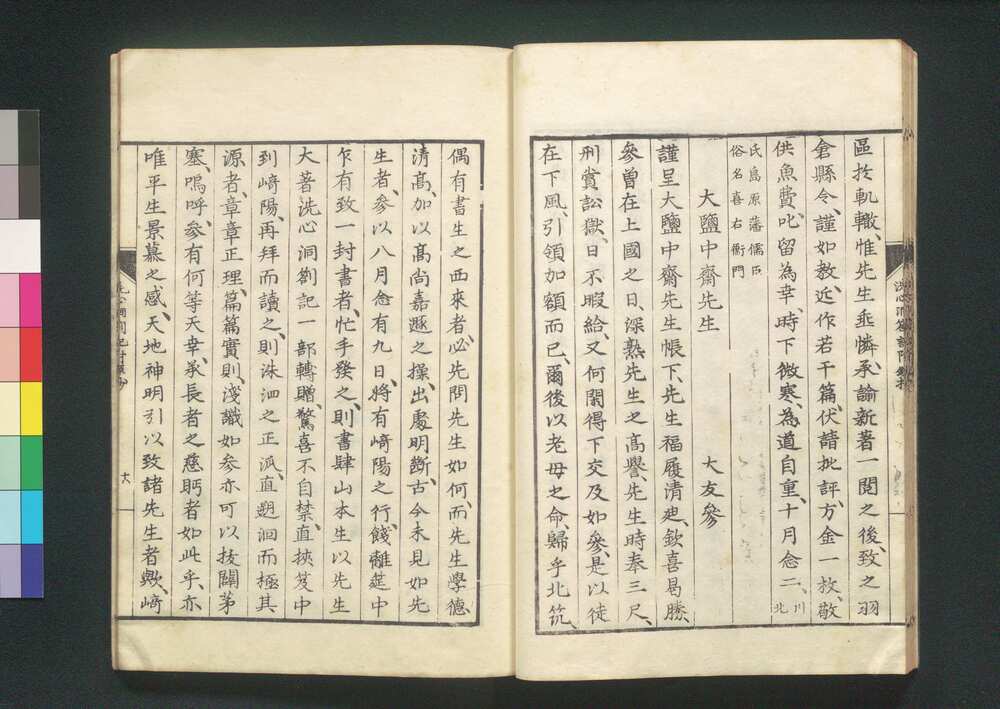 區於軌轍、惟先生垂憐、承諭新著一閱之後、致之羽
倉縣令、謹如教、近作若干篇、伏請批評、方金一枚、敬
供魚費、叱留為幸、時下微寒、為道自重、十月念二、川北
氏島原藩儒臣
俗名喜右衞門
大鹽中齋先生　大友參
謹呈大鹽中齋先生帳下、先生福履清迪、欽喜曷勝、
參曾在上國之日、深熟先生之高譽、先生時奉三尺、
刑賞訟獄、日不暇給、又何閑得下交及如參、是以徒
在下風、引領加額而已、爾後以老母之命、歸乎北筑、
偶有書生之西來者、必先問先生如何、而先生學德
清高、加以高尚嘉遯之操、出處明斷、古今未見如先
生者、參以八月念有九日、將有崎陽之行、餞離筵中
乍有致一封書者、忙手發之、則書肆山本生以先生
大著洗心洞劄記一部轉贈、驚喜不自禁、直挾笈中
到崎陽、再拜而讀之、則洙泗之正派、直遡洄而極其
源者、章章正理、篇篇實則、淺識如參亦可以拔關茅
塞、嗚呼、參有何等天幸、承長者之慈眄者如此乎、亦
唯平生景慕之感、天地神明引以致諸先生者歟、崎
十八